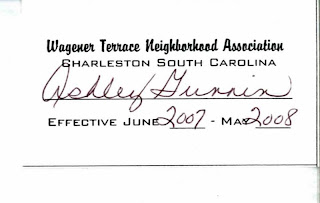 Wagener Terrace Neighborhood Association
Charleston South Carolina
Ashley Gunnin
Effective June 2007 - May 2008